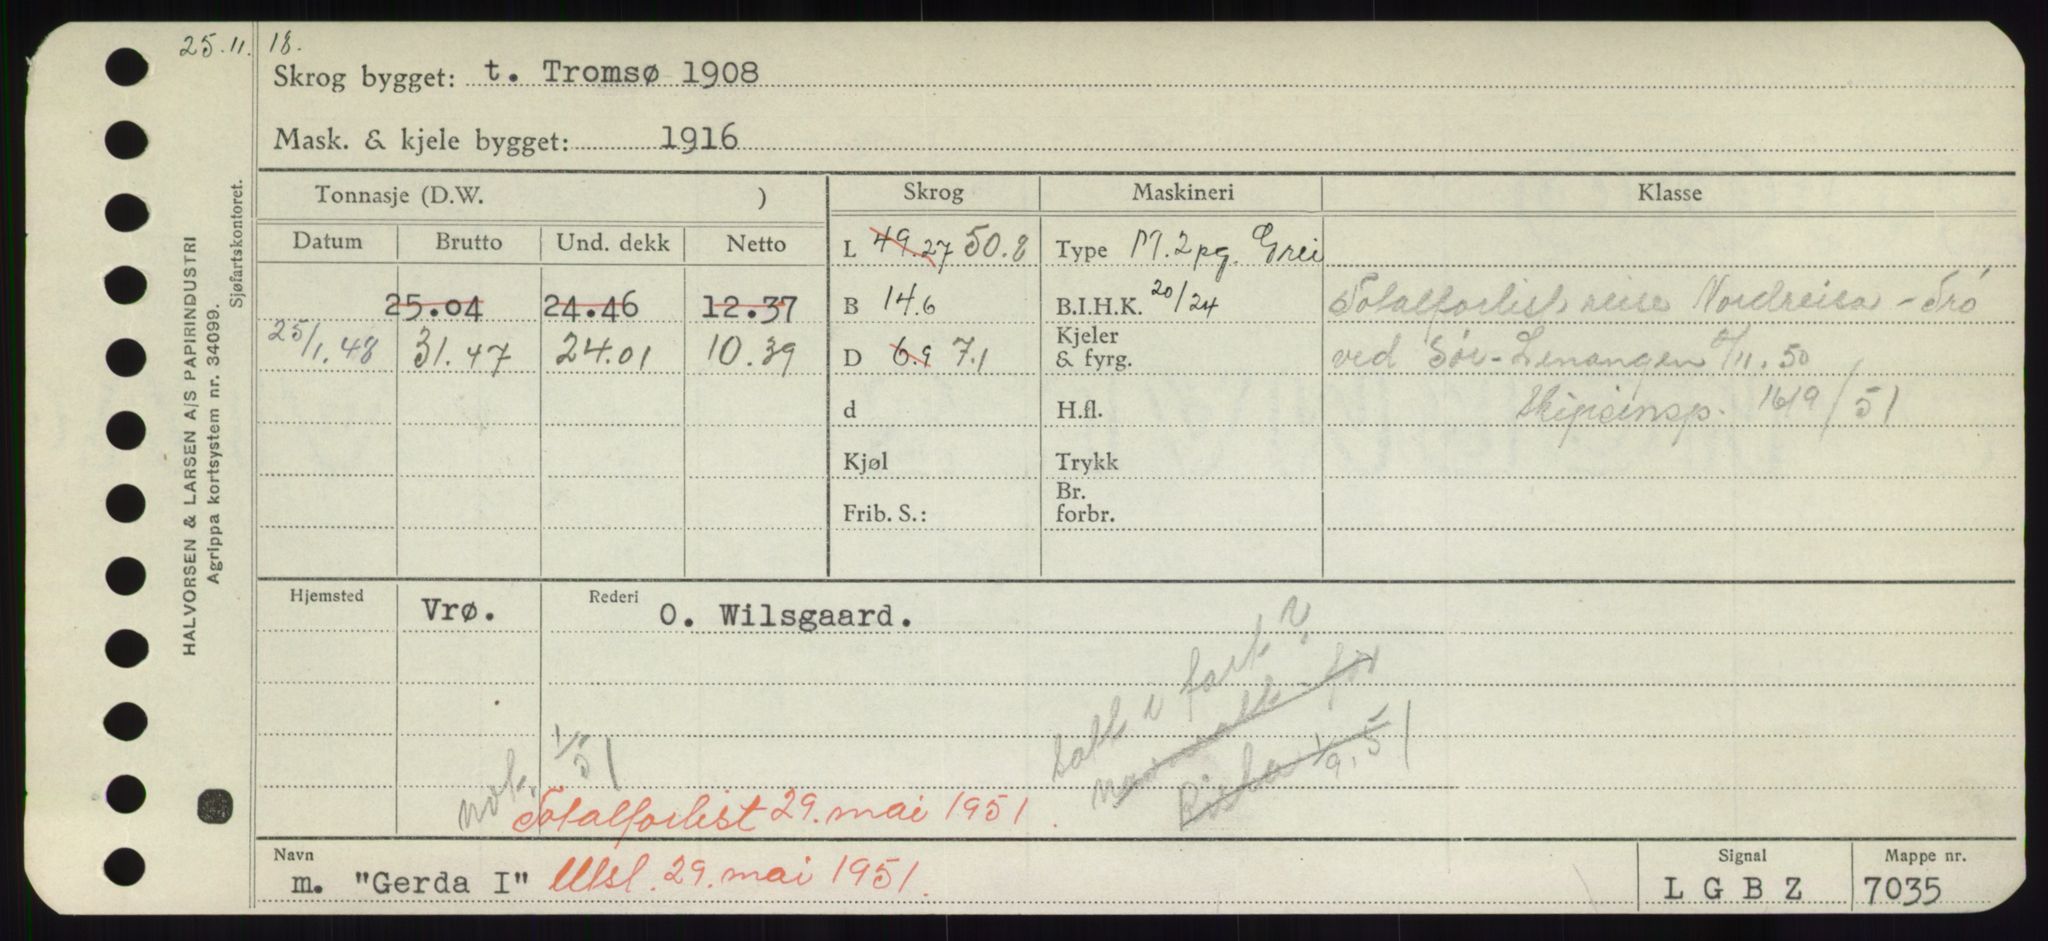 25.11. 18.
Skrog bygget: t. Tromsø 1908
Mask. & kjele bygget: 1916
HALVORSEN & LARSEN A/S PAPIRINDUSTRI
Agrippa kortsystem nr. 34099.
Sjøfartskontoret.
Tonnasje (D.W. )
Datum Brutto Und. dekk Netto
25.04 24.46 12.37
25/1.48 31.47 24.01 10.39
Skrog
L 49.27 50.8
B 14.6
D 6.9 7.1
d
Kjøl
Frib. S.:
Maskineri
Type M. 2 pg. Grei
B.I.H.K. 20/24
Kjeler
& fyrg.
H.fl.
Trykk
Br.
forbr.
Klasse
Totalforlist reise Nordreisa - Trø
ved Sør-Lenangen /11.50
Skipsinsp. /51
Hjemsted Vrø. Rederi O. Wilsgaard.
i fart?
not. 1/51
Totalforlist 29. mai 1951.
Navn
m. "Gerda I" Utsl. 29. mai 1951.
Signal
L G B Z
Mappe nr.
7035